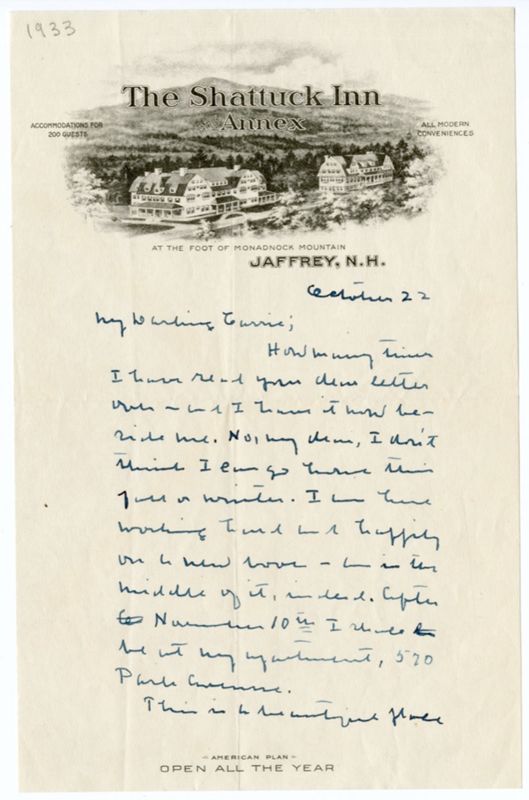 1933
The Shattuck Inn
and Annex
ACCOMMODATIONS FOR
200 GUESTS
ALL MODERN
CONVENIENCES
AT THE FOOT OF MONADNOCK MOUNTAIN
JAFFREY, N.H.
October 22
My Darling Carrie;
How many times
I have read your dear letter
over - and I have it now be-
side me. No, my dear, I don't
think I can go home this
fall or winter. I am here
working hard and happily
on a new book - am in the
middle of it, indeed. After
November 10th I shall
be at my apartment, 570
Park Avenue.
This is a beautiful place
AMERICAN PLAN
OPEN ALL THE YEAR